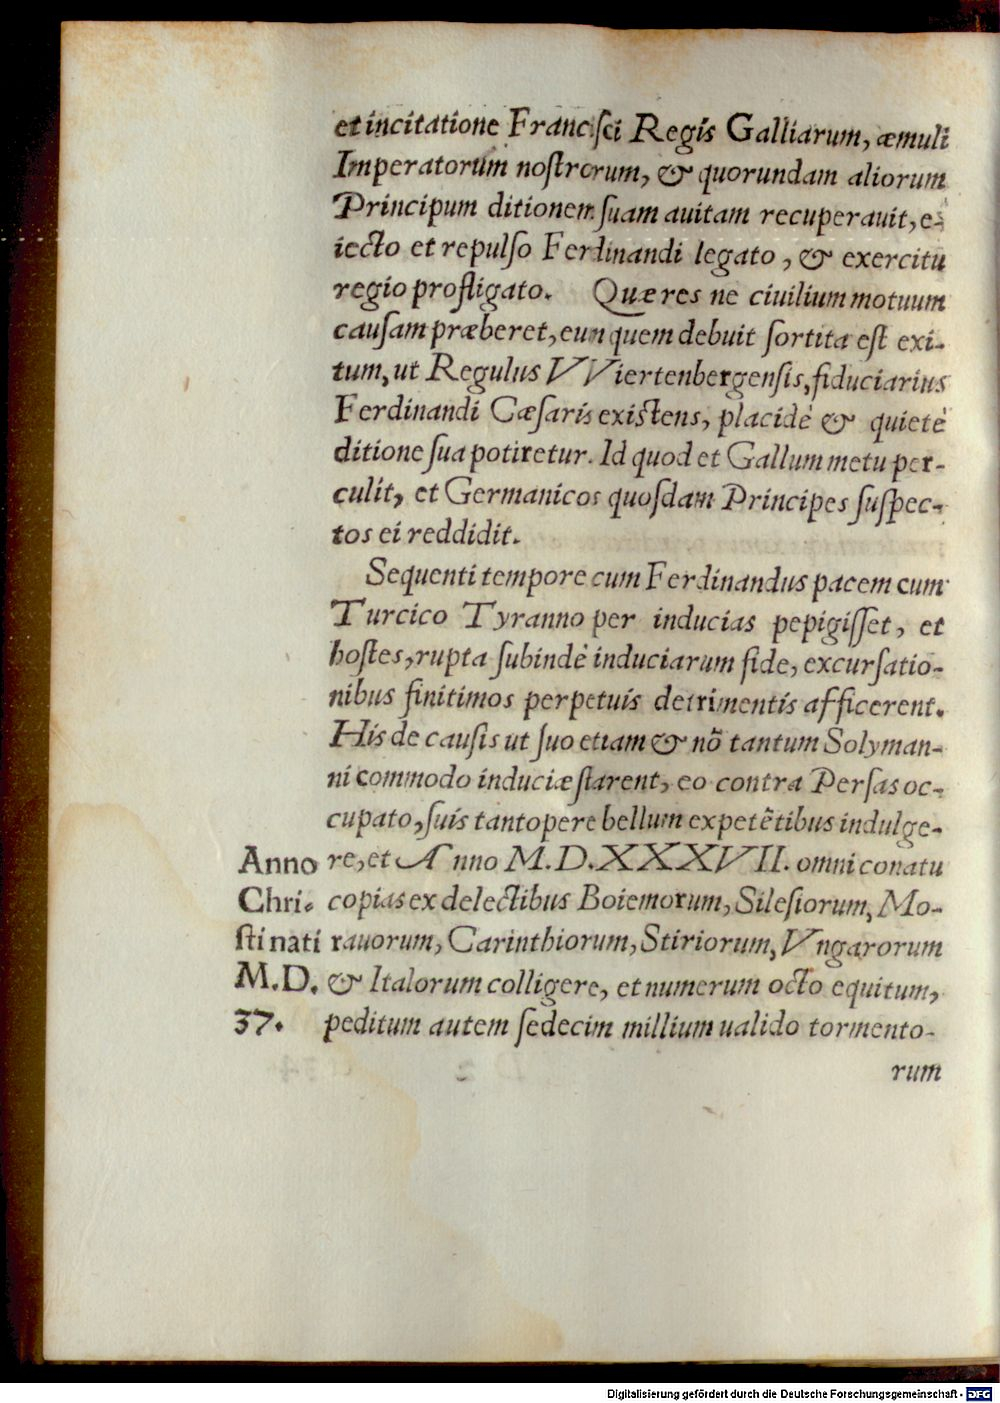 et incitatione Franciſci Regis Galliarum, æmuli
Imperatorum noſtrorum, & quorundam aliorum
Principum ditionem ſuam auitam recuperauit, e-
iecto et repulſo Ferdinandi legato, & exercitu
regio profligato. Quæ res ne ciuilium motuum
cauſam præberet, eum quem debuit ſortita eſt exi-
tum, ut Regulus VViertenbergenſis, fiduciarius
Ferdinandi Cæſaris existens, placidè & quietè
ditione ſua potiretur. Id quod et Gallum metu per-
culit, et Germanicos quoſdam Principes ſuſpec-
tos ei reddidit.
Sequenti tempore cum Ferdinandus pacem cum
Turcico Tyranno per inducias pepigiſſet, et
hoſtes, rupta ſubindè induciarum fide, excurſatio-
nibus finitimos perpetuis detrimentis afficerent.
His de cauſis ut ſuo etiam & nõ tantum Solyman-
ni commodo induciæ ſtarent, eo contra Perſas oc-
cupato, ſuis tantopere bellum expetẽtibus indulge-
re, et Anno M.D.XXXVII. omni conatu
copias ex delectibus Boiemorum, Sileſiorum, Mo-
rauorum, Carinthiorum, Stiriorum, Vngarorum
& Italorum colligere, et numerum octo equitum,
peditum autem ſedecim millium ualido tormento-
rum
Anno
Chri-
ſti nati
M.D.
37.
Digitalisierung gefördert durch die Deutsche Forschungsgemeinschaft - DFG